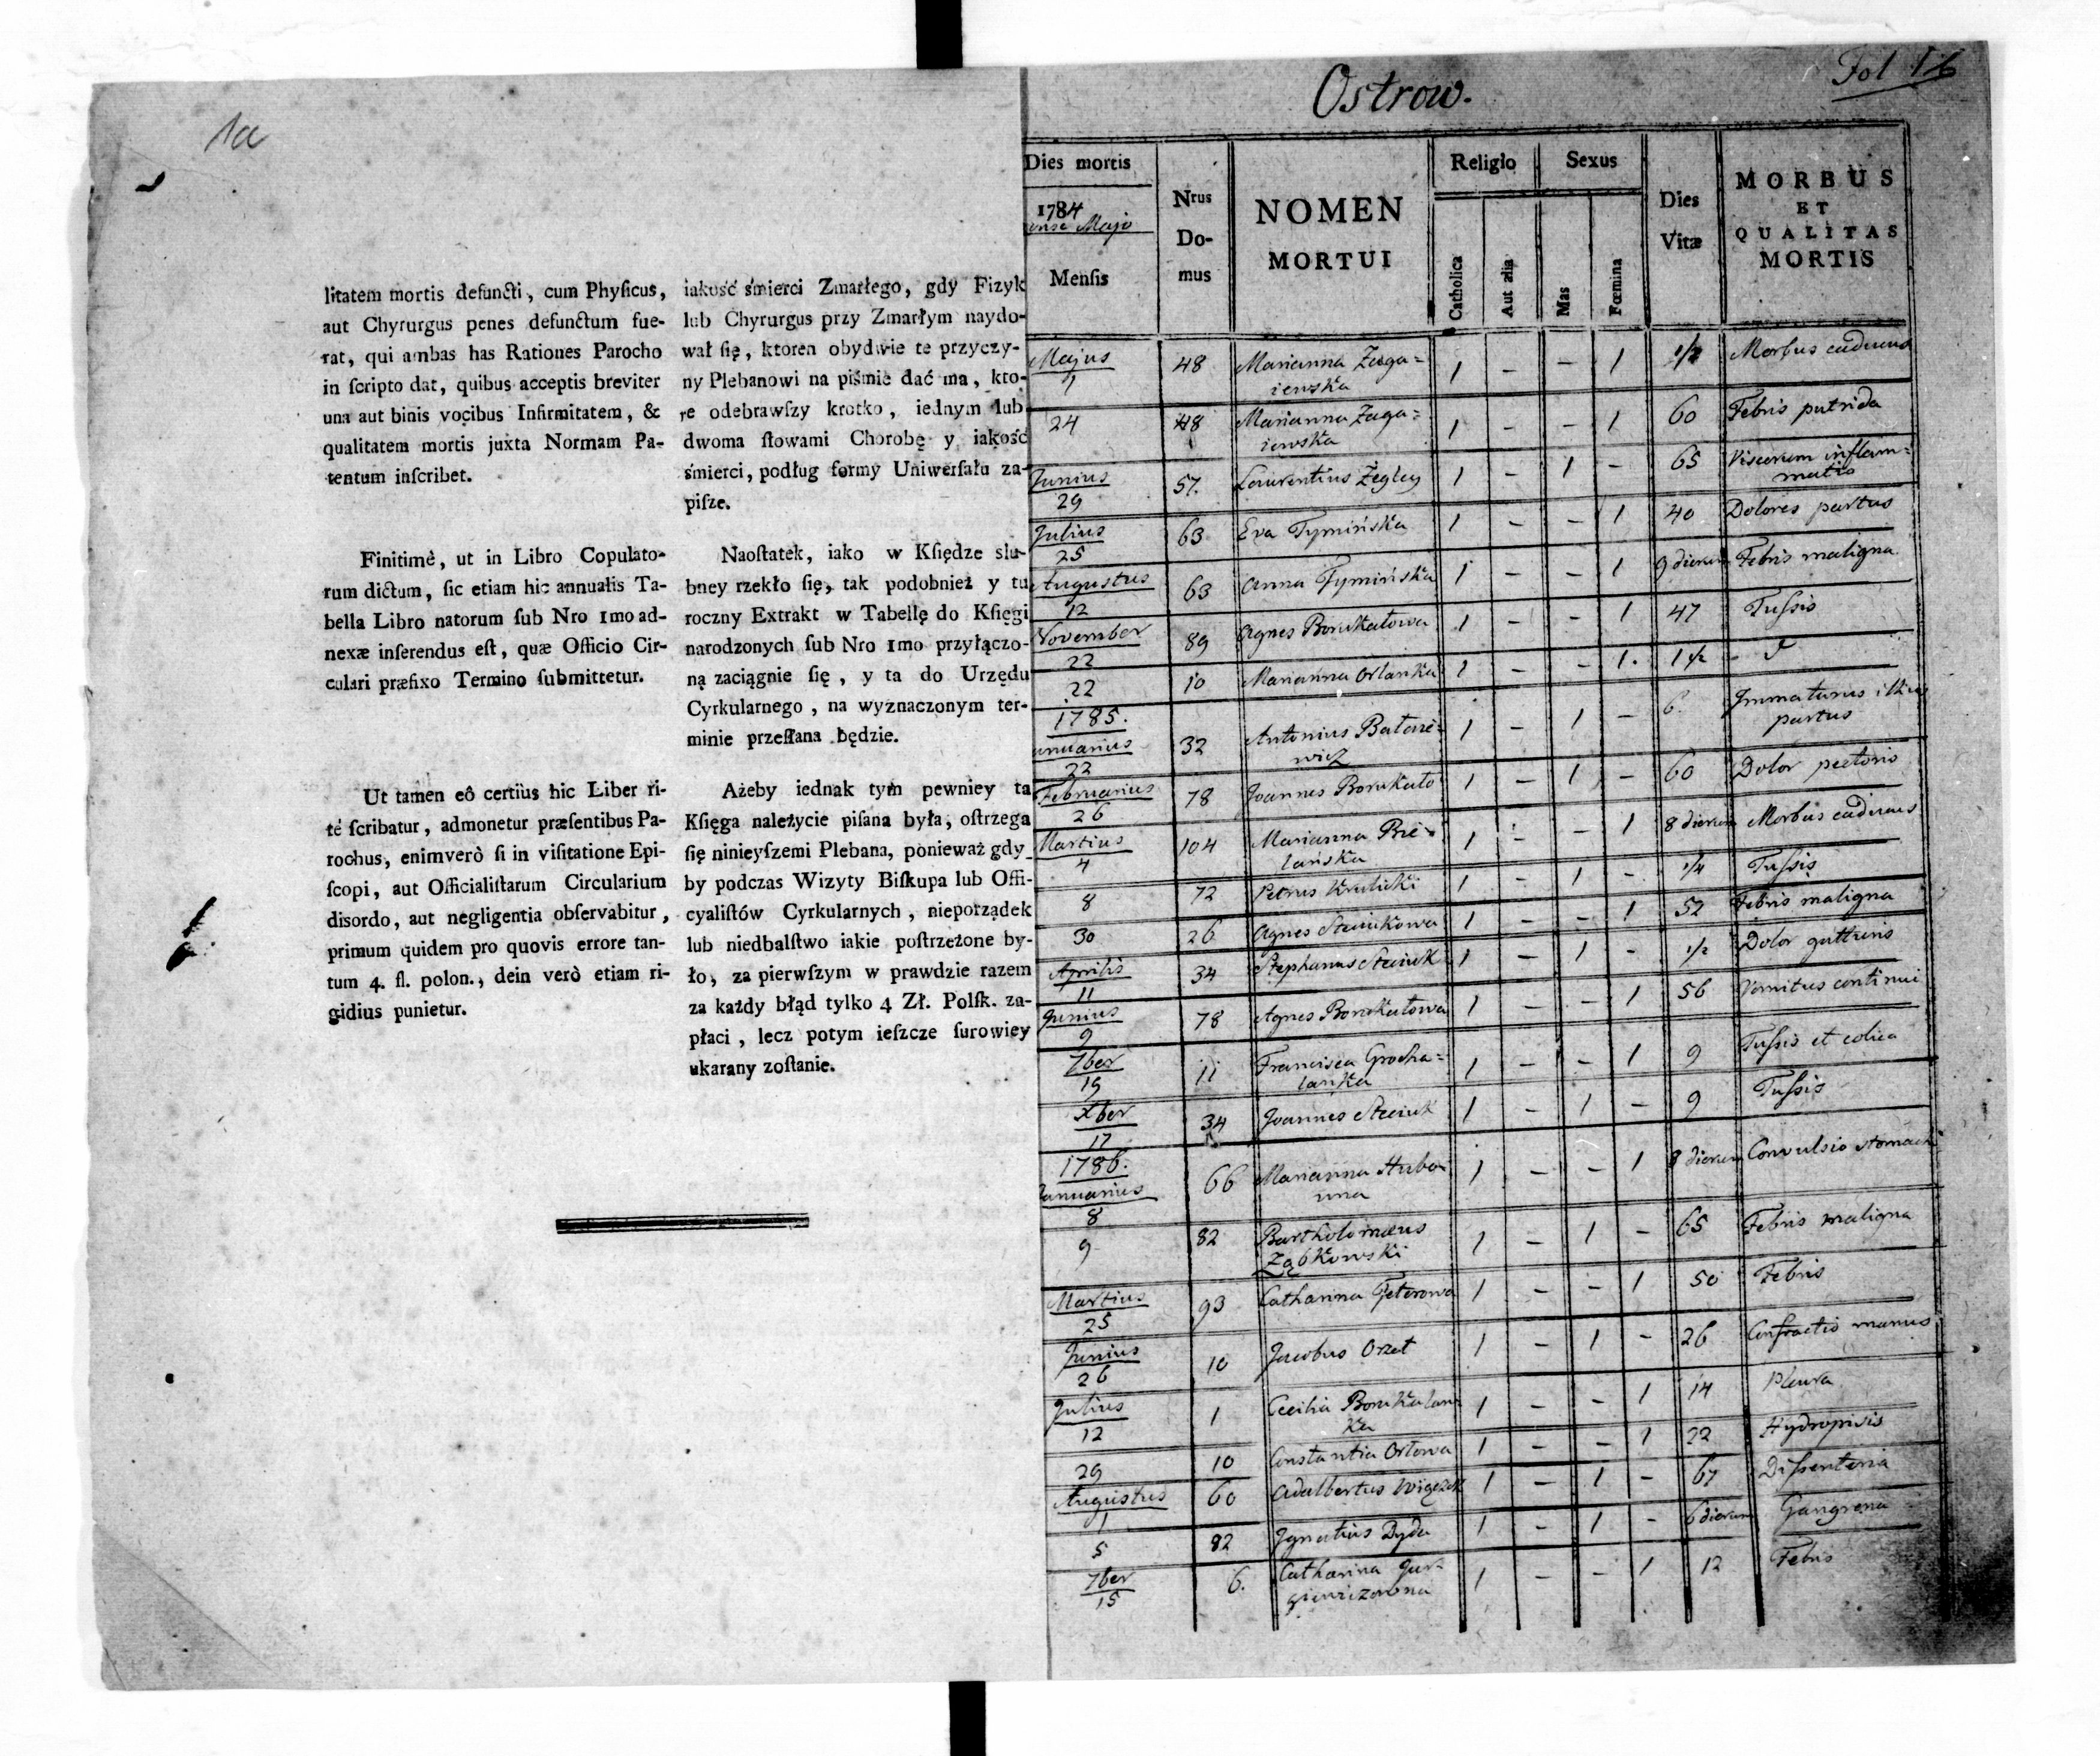 1a
litatem mortis defuncti, cum Phyſicus,
aut Chyrurgus penes defunctum fue-
rat, qui ambas has Rationes Parocho
in ſcripto dat, quibus acceptis breviter
una aut binis vocibus Infirmitatem, &
qualitatem mortis juxta Normam Pa-
tentum inſcribet.
Finitimè, ut in Libro Copulato-
rum dictum, ſic etiam hic annualis Ta-
bella Libro natorum ſub Nro 1mo ad-
nexæ inſerendus eſt, quæ Officio Cir-
culari præfixo Termino ſubmittetur.
Ut tamen eô certiùs hic Liber ri-
tè ſcribatur, admonetur præſentibus Pa-
rochus, enimverò ſi in viſitatione Epi-
ſcopi, aut Officialiſtarum Circularium
disordo, aut negligentia obſervabitur,
primum quidem pro quovis errore tan-
tum 4. fl. polon., dein verò etiam ri-
gidius punietur.
iakość śmierci Zmarłego, gdy Fizyk
lub Chyrurgus przy Zmarłym naydo-
wał ſię, ktoren obydwie te przyczy-
ny Plebanowi na piśmie dać ma, kto-
re odebrawſzy krotko, iednym lub
dwoma ſłowami Chorobę y iakość
śmierci, podług formy Uniwerſału za-
piſze.
Naoſtatek, iako w Kſiędze slu-
bney rzekło ſię, tak podobnież y tu
roczny Extrakt w Tabellę do Kſięgi
narodzonych ſub Nro 1mo przyłączo-
ną zaciągnie ſię, y ta do Urzędu
Cyrkularnego, na wyznaczonym ter-
minie przeſłana będzie.
Ażeby iednak tym pewniey ta
Kſięga należycie piſana była, oſtrzega
ſię ninieyſzemi Plebana, ponieważ gdy-
by podczas Wizyty Biſkupa lub Offi-
cyaliſtów Cyrkularnych, nieporządek
lub niedbalſtwo iakie poſtrzeżone by-
ło, za pierwſzym w prawdzie razem
za każdy błąd tylko 4 Zł. Polſk. za-
płaci, lecz potym ieſzcze ſurowiey
ukarany zoſtanie.
Ostrow.
Fol
Dies mortis
1784
Majo
Menſis
Nrus
Do-
mus
NOMEN
MORTUI
Religio
Catholica
Aut alia
Sexus
Mas
Fœmina
Dies
Vitæ
MORBUS
ET
QUALITAS
MORTIS
Majus 1 48 Marianna Zaga=
iewska 1 – – 1 1/2 Morbus caducus
24 48 Marianna Zaga=
iewska 1 – – 1 60 Febris putrida
Junius 29 57. Laurentius 1 – 1 – 65 Viscerum inflam=
matio
Julius 25 63 Eva Tymińska 1 – – 1 40 Dolores partus
Augustus 12 63 Anna Tymińska 1 – – 1 9 dierum Febris maligna
November 22 89 Agnes Borukałowa 1 – – 1 47 Tussis
22 10 Marianna Orlanka 1 – – 1. 1 1/2
1785.
Januarius 22 32 Antonius
wicz 1 – 1 – 6. Immaturus
partus
Februarius 26 78 Joannes Borukało 1 – 1 – 60 Dolor pectoris
Martius 4 104 Marianna Bie=
lańska 1 – – 1 8 dierum Morbus caducus
8 72 Petrus Krulicki 1 – 1 – 1/4 Tussis
30 26 Agnes Steciukowa 1 – – 1 52 Febris maligna
Aprilis 11 34 Stephanus Steciuk 1 – 1 – 1/2 Dolor gutturis
Junius 9 78 Agnes Borukałowa 1 – – 1 56 Vomitus continui
7ber 19 11 Francisca Grocha=
lanka 1 – – 1 9 Tussis et colica
Xber 17 34 Joannes Steciuk 1 – 1 – 9 Tussis
1786.
Januarius 8 66 Marianna 1 – – 1 8 dierum Convulsio stomachi
9 82 Bartholomæus
Ząbkowski 1 – 1 – 65 Febris maligna
Martius 25 93 Catharina Feterowa 1 – – 1 50 Febris
Junius 26 10 Jacobus Orzeł 1 – 1 – 26 Confractio manus
Julius 12 1 Cecilia Borukalan
ka 1 – – 1 14 Pleura
29 10 Constantia Orłowa 1 – – 1 22 Hydropisis
Augustus 1 60 Adalbertus 1 – 1 – 67 Dissenteria
5 82 Ignatius Dyda 1 – 1 – 6 dierum Gangrena
7ber 15 6. Catharina Jur=
giewiczowna 1 – – 1 12 Febris